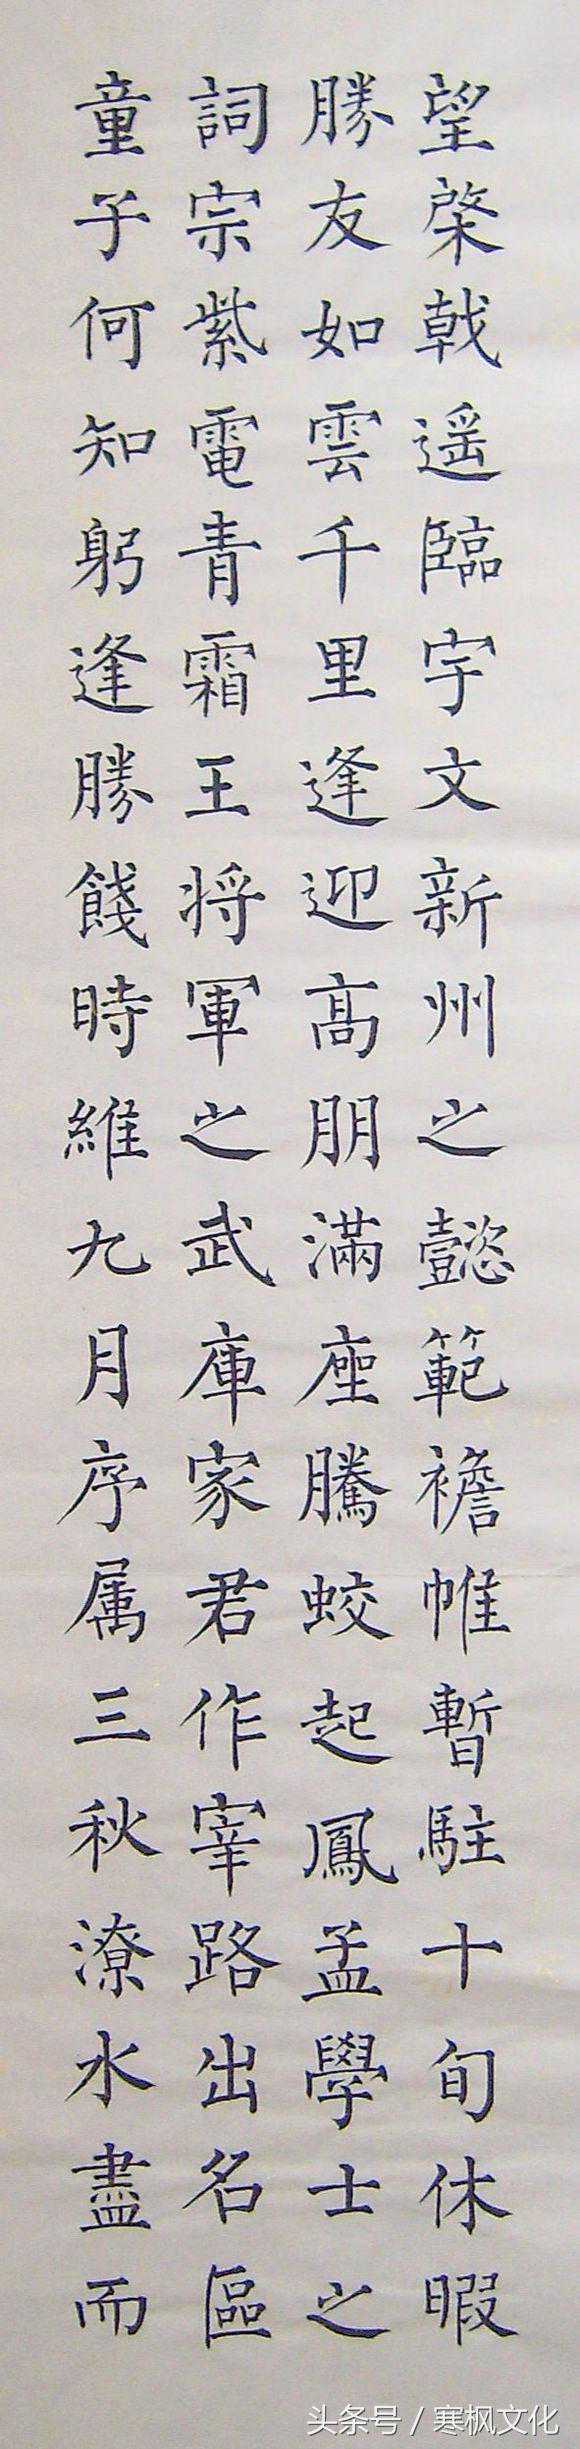 望棨戟遥臨宇文新州之懿範襜帷暫駐十旬休暇
勝友如雲千里逢迎高朋滿座騰蛟起鳳孟學士之
詞宗紫電青霜王将軍之武庫家君作宰路出名區
童子何知躬逢勝餞時維九月序属三秋潦水盡而
头条号 / 寒枫文化